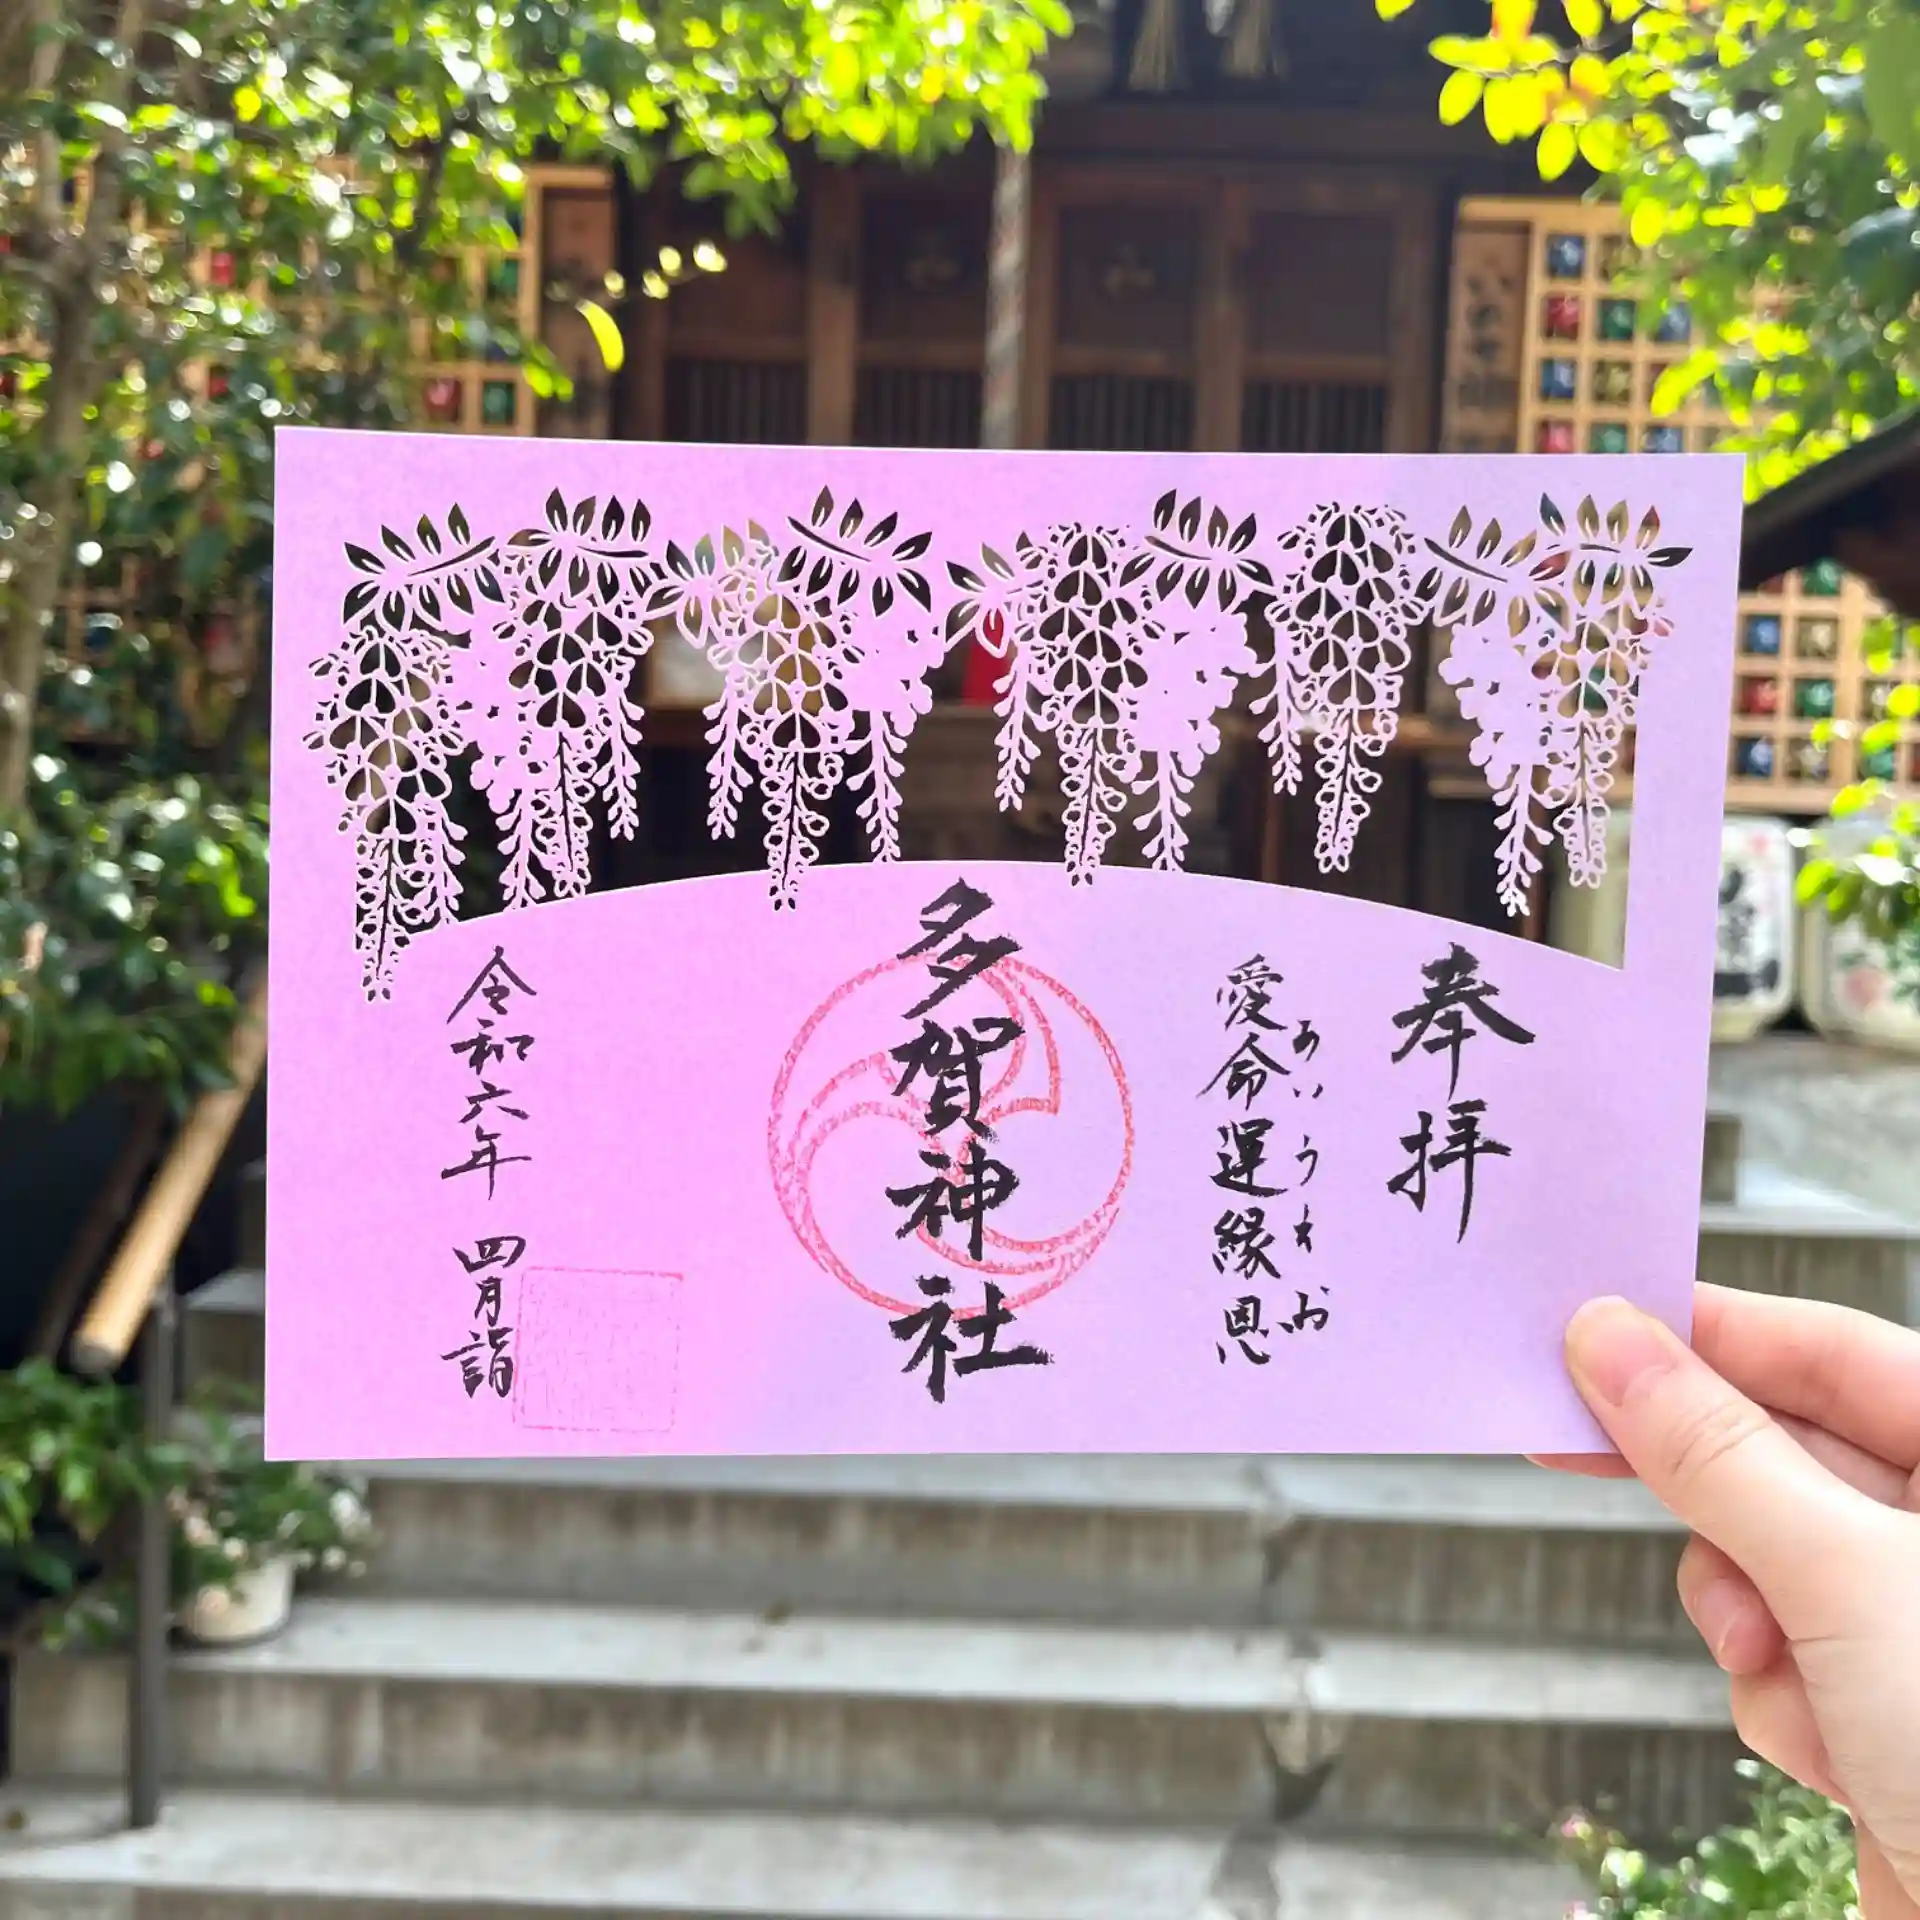 奉拝
愛命運縁恩
あいうえお
多賀神社
令和六年 四月詣